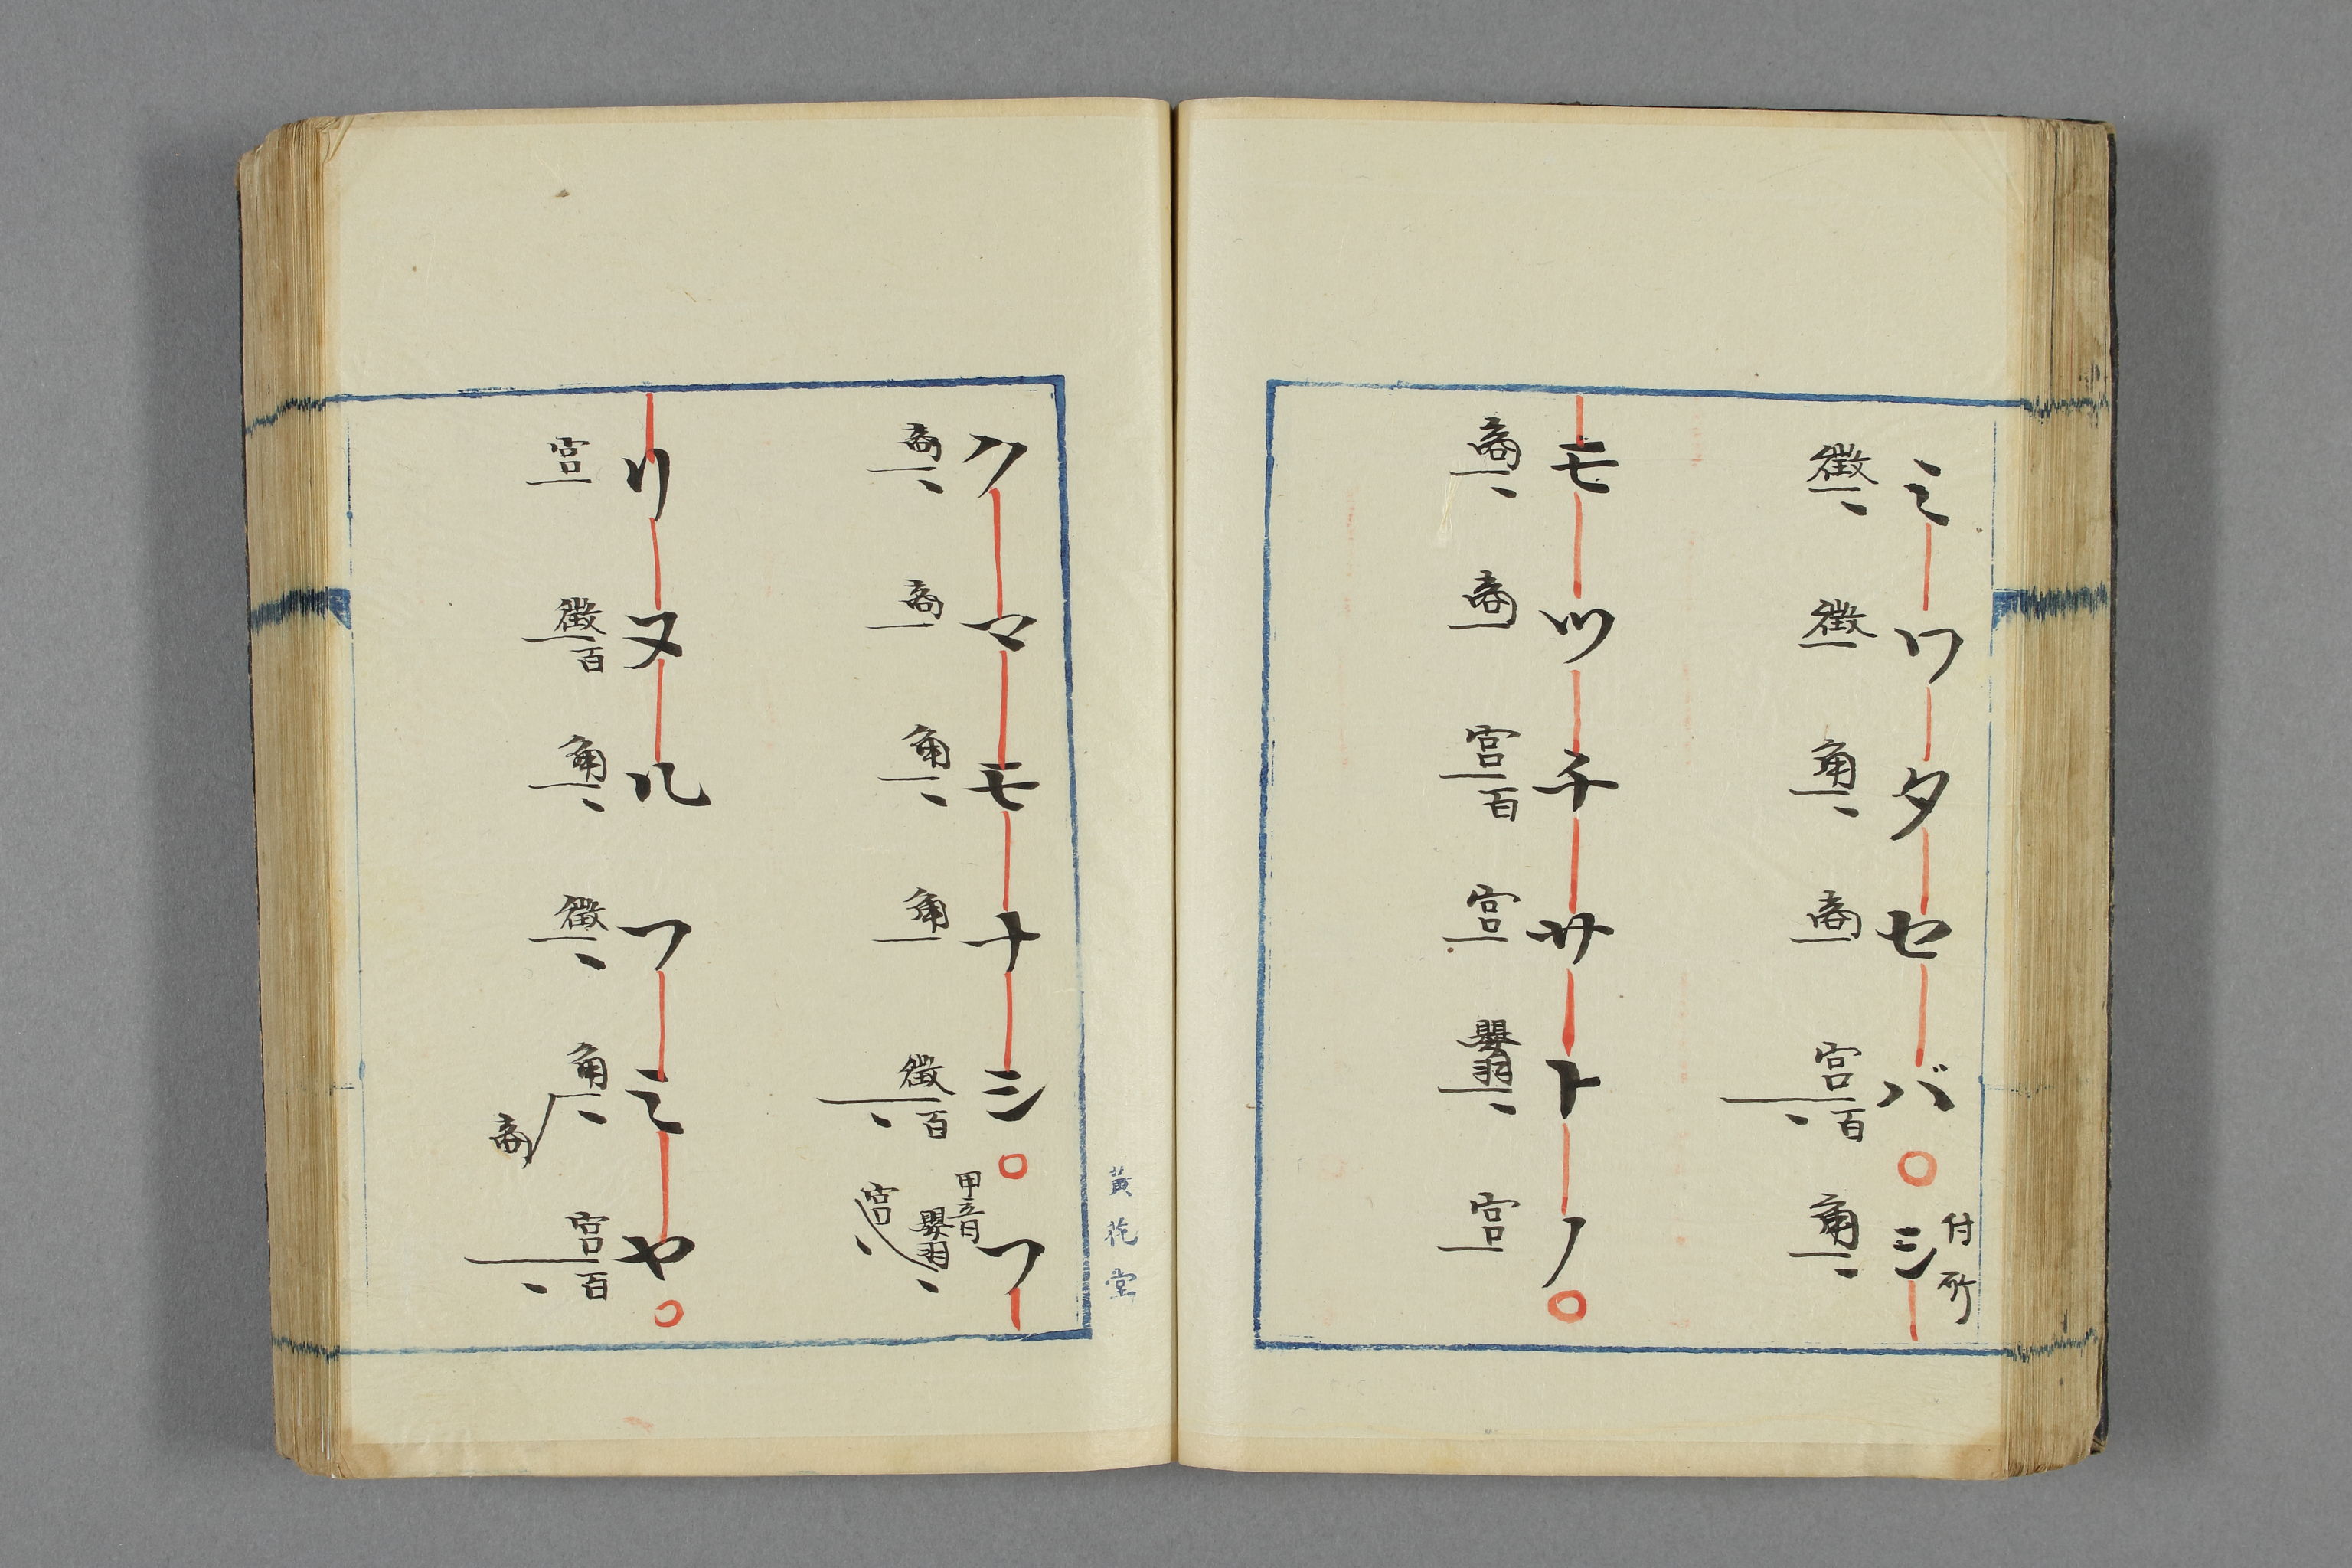 ミワタセバシ
付所
徴徴角商宮百角
モツチサトノ
商商宮百宮嬰羽宮
クマモナシフ
甲音
商商角角徴百嬰羽宮
リヌルフミヤ
宮徴百角徴角商宮百
黄花堂